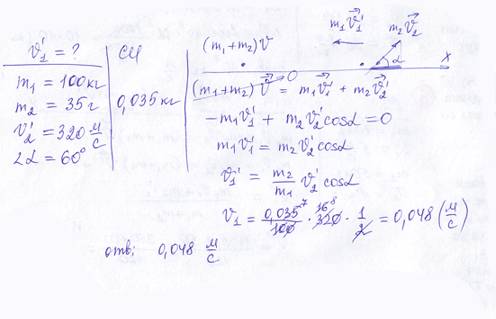 v₁' = ?
СИ
m₁ = 100 кг
m₂ = 35 г
0,035 кг
v₂' = 320 м/с
∠α = 60°
(m₁+m₂)v
m₁v⃗₁'
m₂v⃗₂'
α
x
(m₁+m₂)v⃗→0 = m₁v⃗₁' + m₂v⃗₂'
-m₁v₁' + m₂v₂'cosα = 0
m₁v₁' = m₂v₂'cosα
v₁' = m₂/m₁ v₂'cosα
v₁ = 0,035/100 · 320 · 1/2 = 0,048 (м/с)
отв: 0,048 м/с